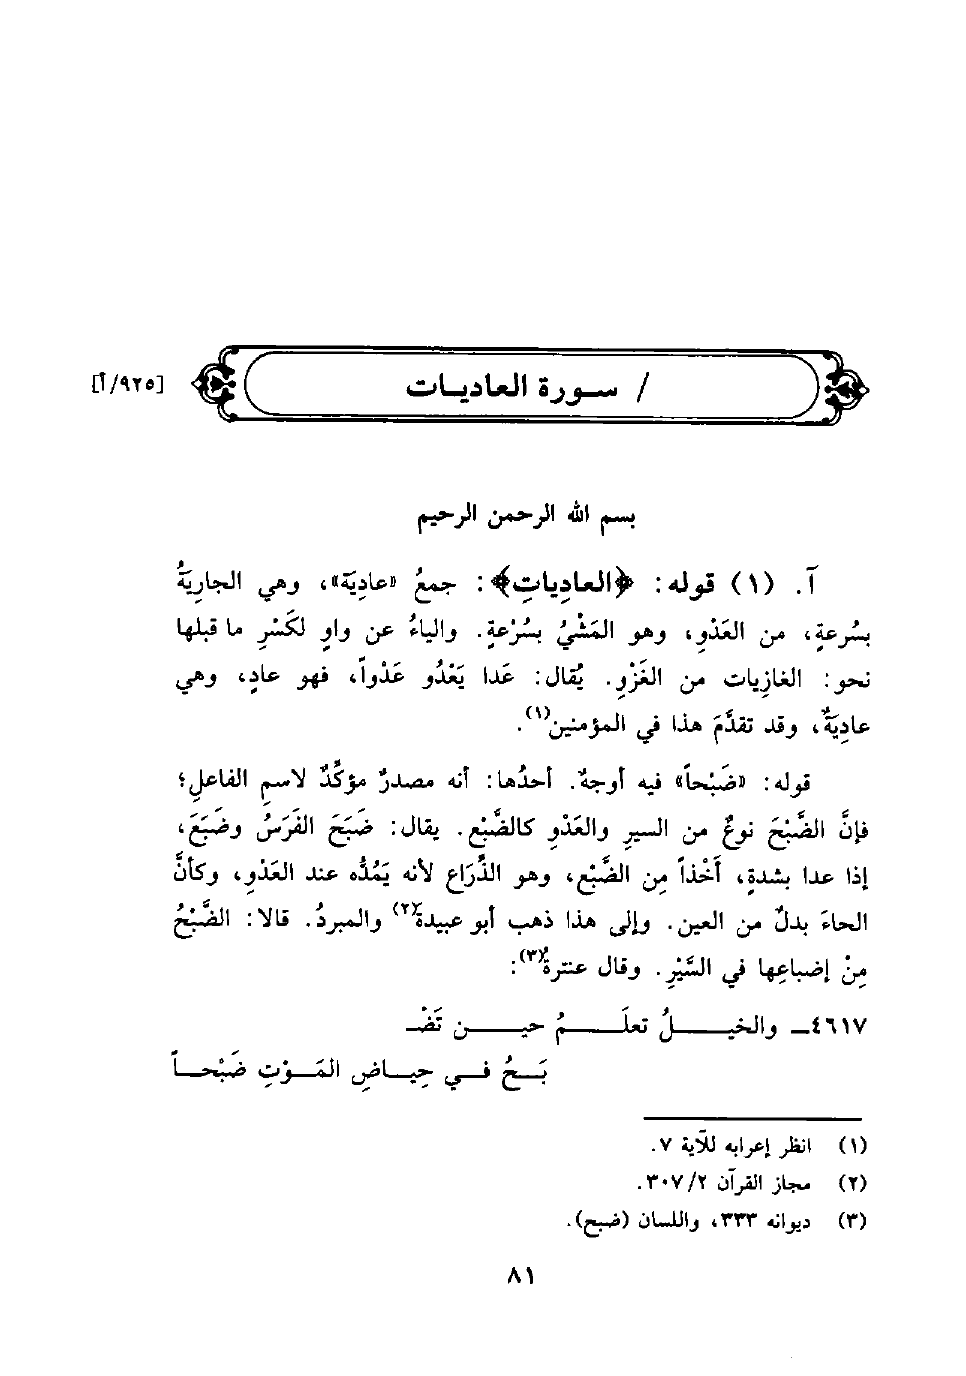 / سورة العاديات
[٩٢٥/أ]
بسم الله الرحمن الرحيم
آ. (١) قوله: ﴿العادِياتِ﴾: جمعُ «عادِيَة»، وهي الجاريَةُ
بسُرعةٍ، من العَدْوِ، وهو المَشْيُ بسُرْعةٍ. والياءُ عن واوٍ لكَسْرِ ما قبلها
نحو: الغازِيات من الغَزْوِ. يُقال: عَدا يَعْدُو عَدْواً، فهو عادٍ، وهي
عادِيَةٌ، وقد تقدَّمَ هذا في المؤمنين(١).
قوله: «ضَبْحاً» فيه أوجهٌ. أحدُها: أنه مصدرٌ مؤكِّدٌ لاسمِ الفاعلِ؛
فإنَّ الضَّبْحَ نوعٌ من السيرِ والعَدْوِ كالضَّبْع. يقال: ضَبَحَ الفَرَسُ وضَبَعَ،
إذا عدا بشدةٍ، أَخْذاً مِن الضَّبْع، وهو الذِّرَاع لأنه يَمُدُّه عند العَدْوِ، وكأنَّ
الحاءَ بدلٌ من العين. وإلى هذا ذهب أبو عبيدة(٢) والمبردُ. قالا: الضَّبْحُ
مِنْ إضباعِها في السَّيْرِ. وقال عنترةُ(٣):
٤٦١٧ــ والخيــــلُ تعلَــــمُ حيــــن تَضْــ
بَــحُ فــي حِيــاضِ المَــوْتِ ضَبْحــاً
(١) انظر إعرابه للآية ٧.
(٢) مجاز القرآن ٣٠٧/٢.
(٣) ديوانه ٣٣٣، واللسان (ضبح).
٨١